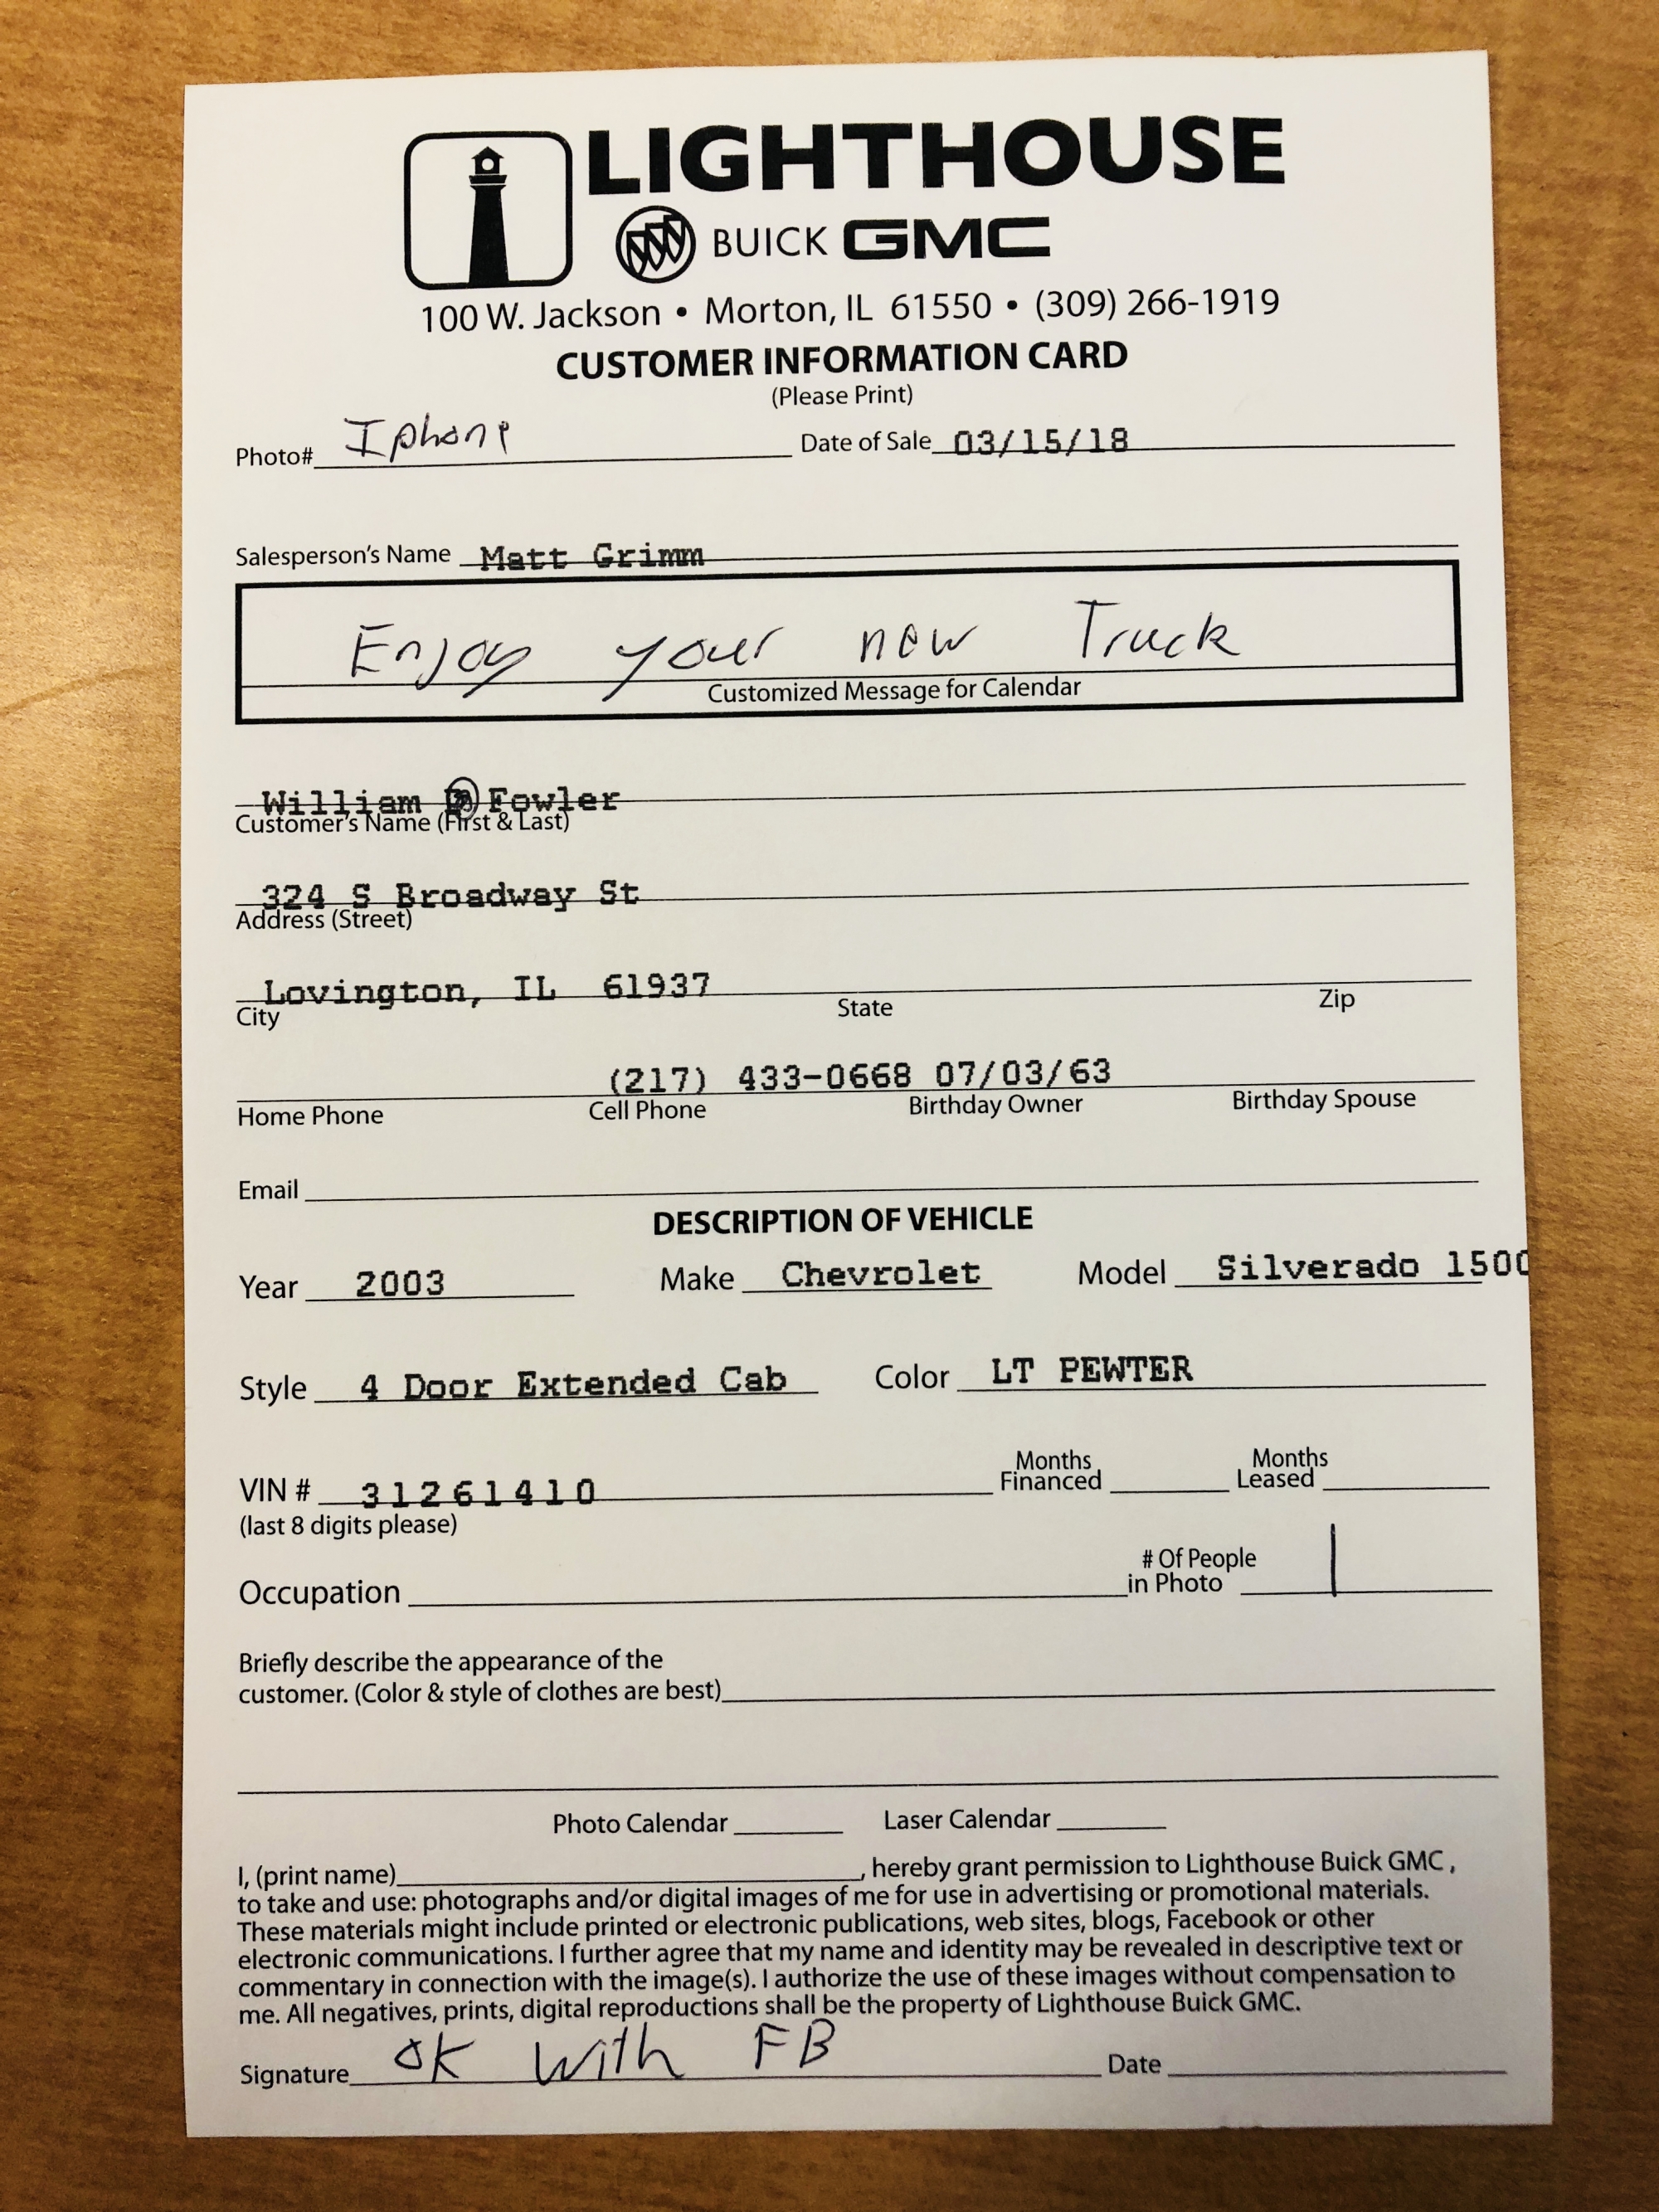 LIGHTHOUSE
BUICK GMC
100 W. Jackson • Morton, IL 61550 • (309) 266-1919
CUSTOMER INFORMATION CARD
(Please Print)
Photo# Iphone Date of Sale 03/15/18
Salesperson's Name Matt Grimm
Enjoy your new Truck
Customized Message for Calendar
William Fowler
Customer's Name (First & Last)
324 S Broadway St
Address (Street)
Lovington, IL 61937
City State Zip
(217) 433-0668 07/03/63
Home Phone Cell Phone Birthday Owner Birthday Spouse
Email
DESCRIPTION OF VEHICLE
Year 2003 Make Chevrolet Model Silverado 1500
Style 4 Door Extended Cab Color LT PEWTER
Months Months
VIN # 31261410 Financed Leased
(last 8 digits please)
# Of People
Occupation in Photo 1
Briefly describe the appearance of the
customer. (Color & style of clothes are best)
Photo Calendar Laser Calendar
I, (print name), hereby grant permission to Lighthouse Buick GMC ,
to take and use: photographs and/or digital images of me for use in advertising or promotional materials.
These materials might include printed or electronic publications, web sites, blogs, Facebook or other
electronic communications. I further agree that my name and identity may be revealed in descriptive text or
commentary in connection with the image(s). I authorize the use of these images without compensation to
me. All negatives, prints, digital reproductions shall be the property of Lighthouse Buick GMC.
Signature OK with FB Date